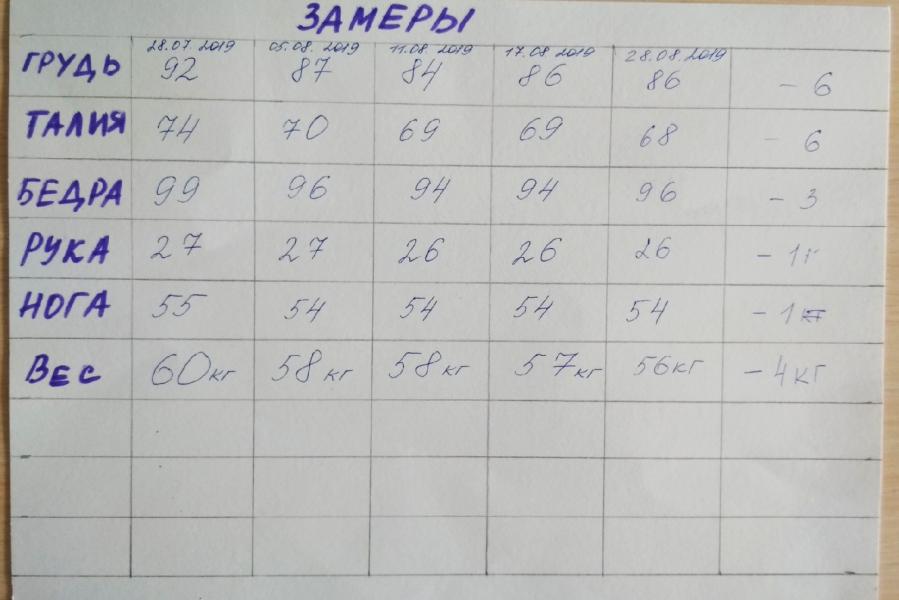 ЗАМЕРЫ
28.07.2019 05.08.2019 11.08.2019 17.08.2019 28.08.2019
ГРУДЬ 92 87 84 86 86 - 6
ТАЛИЯ 74 70 69 69 68 - 6
БЕДРА 99 96 94 94 96 - 3
РУКА 27 27 26 26 26 - 1г
НОГА 55 54 54 54 54 - 1
ВЕС 60кг 58кг 58кг 57кг 56кг - 4кг